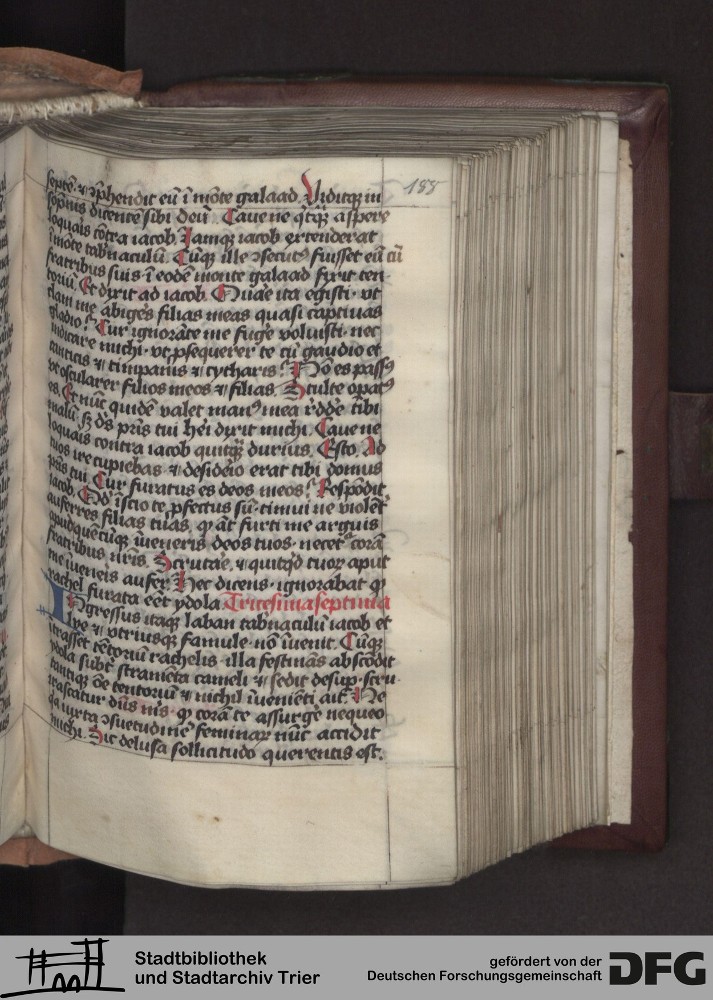 188
septē. ⁊ ↄp̄hendit eū ī mōte galaad. Uiditqꝫ in
sōpnis dicentē sibi deū. Caue ne q̄cqꝫ aspere
loquaris cōtra iacob. Iamqꝫ iacob extenderat
ī mōte tabnaculū. Cūqꝫ ille ↄsecutꝰ fuisset eū cū
fratribus suis. ī eodē monte galaad fixit ten
toriū. Et dixit ad iacob. Quare ita egisti. vt
clam me abiges filias meas quasi captiuas
gladio? Cur ignorāte me fuge voluisti. nec
indicare michi. vt ꝓsequerer te cū gaudio et
canticis ⁊ timpanis ⁊ cytharis? Nō es passꝰ
vt oscularer filios meos ⁊ filias. Stulte opatꝰ
es. Et nūc quidē valet manꝰ mea r̄dde tibi
malū. sꝫ dꝰs pr̄is tui heri dixit michi. Caue ne
loquaris contra iacob quitqꝫ durius. Esto. Ad
tuos ire cupiebas. ⁊ desideio erat tibi domus
pr̄is tui. Cur furatus es deos meos? Respōdit
iacob. Qd' īscio te ꝓfectus sū. timui ne violēt
auferres filias tuas. qꝫ āt furti me arguis
apud quēcūqꝫ īueneris deos tuos. necet̄ corā
fratribus nr̄is. Scrutare. ⁊ quitqd tuoꝝ aput
me īueneis aufer. Hec dicens. ignorabat qꝫ
rachel furata eēt ydola. Tricesimaseptima
Ingressus itaqꝫ laban tabnaculū iacob et
lye ⁊ vtriusqꝫ famule. nō īuenit. Cūqꝫ
ītrasset tētoriū rachelis. illa festinās abscōdit
ydola subt̄ stramēta cameli ⁊ sedit desup. scru
tantiqꝫ ōe tentoriū ⁊ nichil īuenieti ait. Ne
irascatur dn̄s mꝰs. qꝫ corā te assurge nequeo
qa iuxta ↄsuetudinē feminaꝝ nūc accidit
michi. Sic delusa sollicitudo querentis est.
Stadtbibliothek
und Stadtarchiv Trier
gefördert von der
Deutschen Forschungsgemeinschaft
DFG